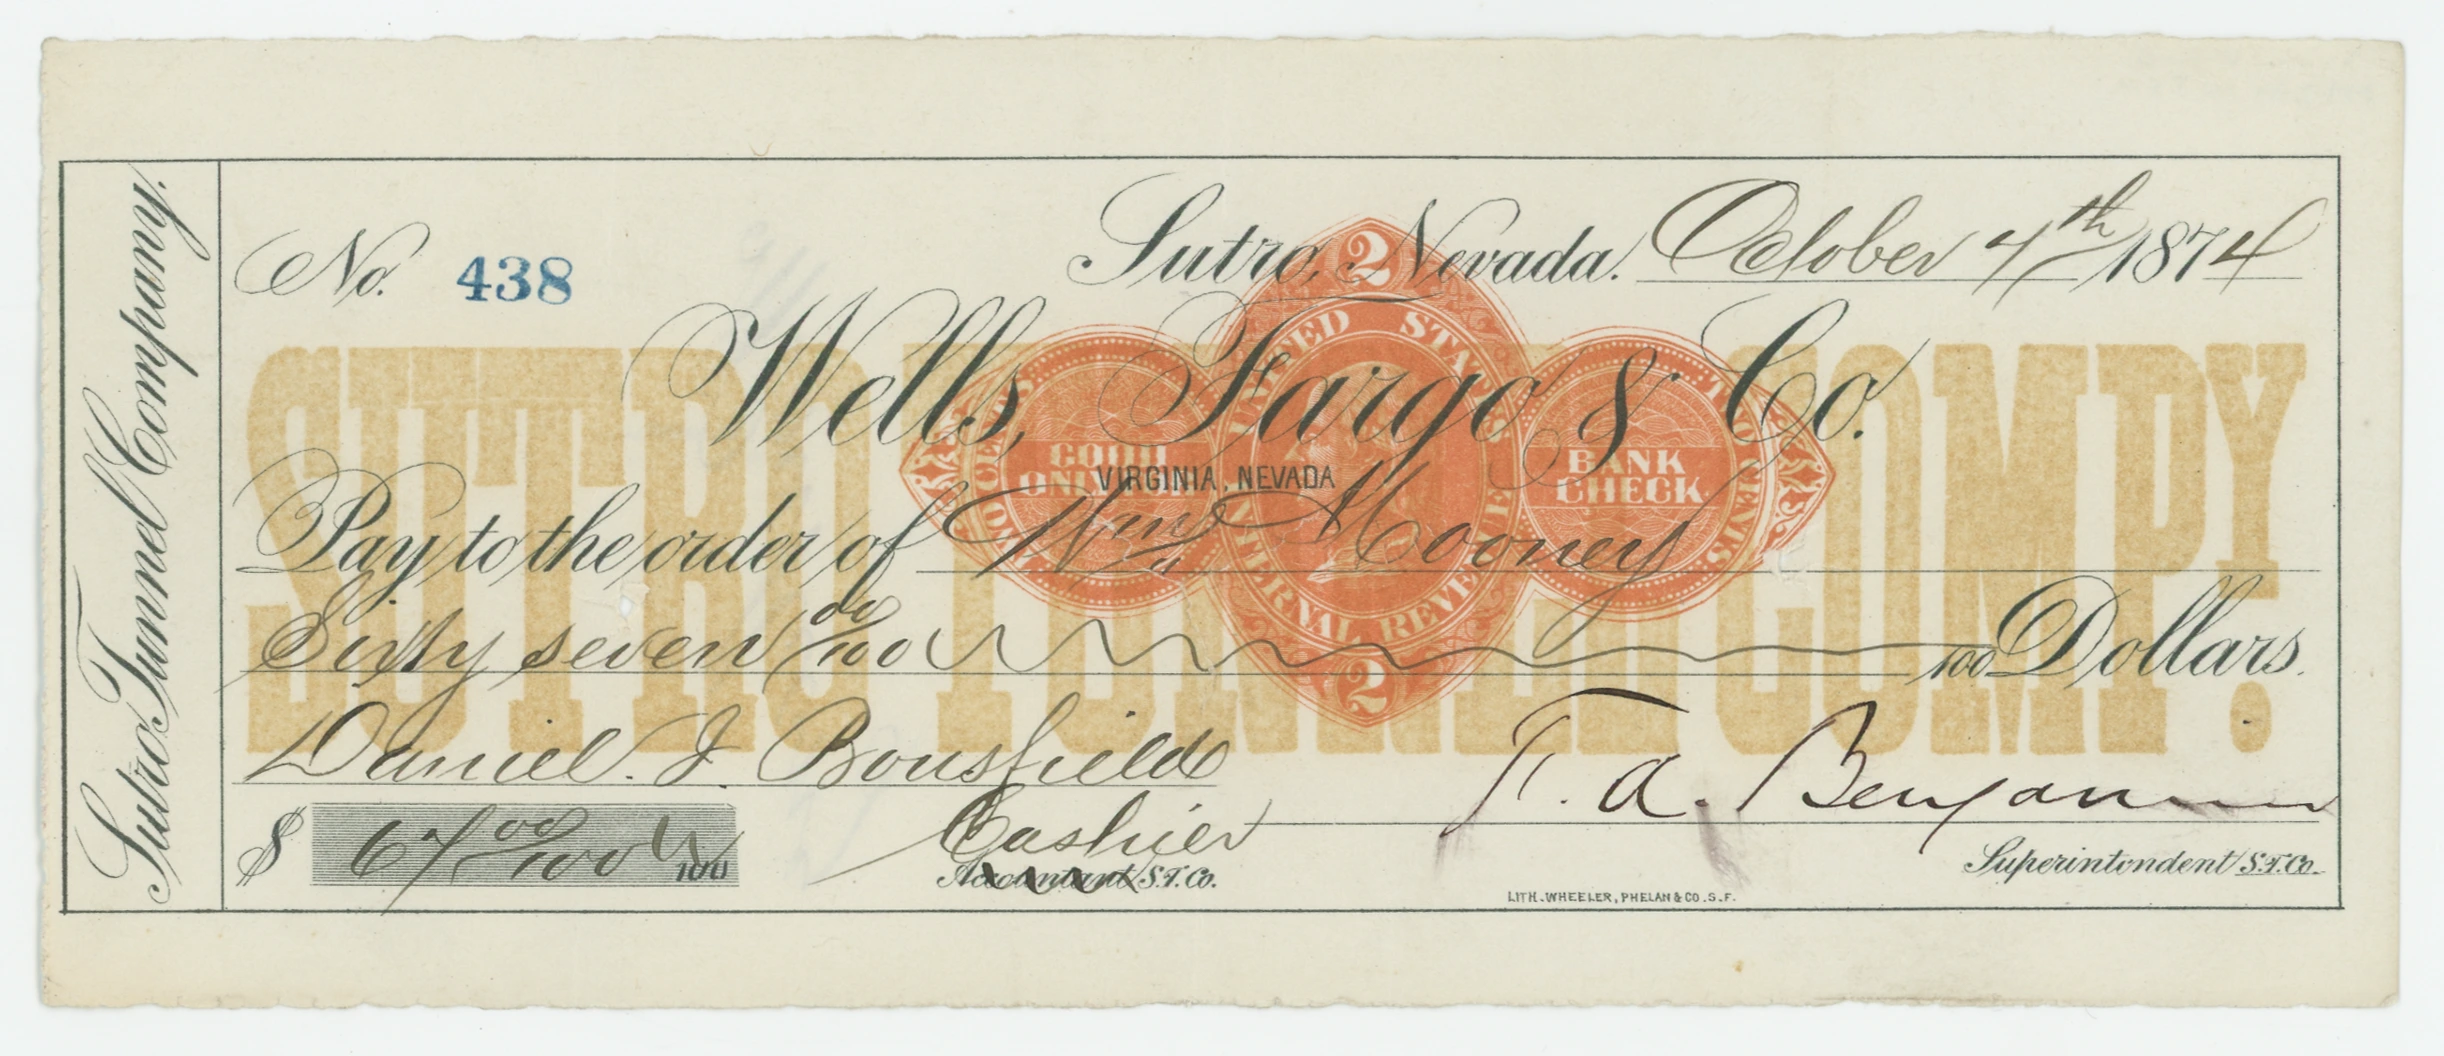 Sutro Tunnel Company.
No. 438
Sutro, Nevada. October 4th 1874
Wells, Fargo & Co.
VIRGINIA, NEVADA
Pay to the order of Wm Mooney
Sixty seven 00/100 /100 Dollars.
Daniel. J. Bousfield
T. A. Benjamin
$ 67 00/100 /100
Cashier
Accountant S.T. Co.
Superintendent S.T. Co.
LITH. WHEELER, PHELAN & CO. S.F.
SUTRO TUNNEL COMPY.
2
UNITED STATES
INTERNAL REVENUE
2
TWO CENTS
GOOD
ONLY
BANK
CHECK
TWO CENTS